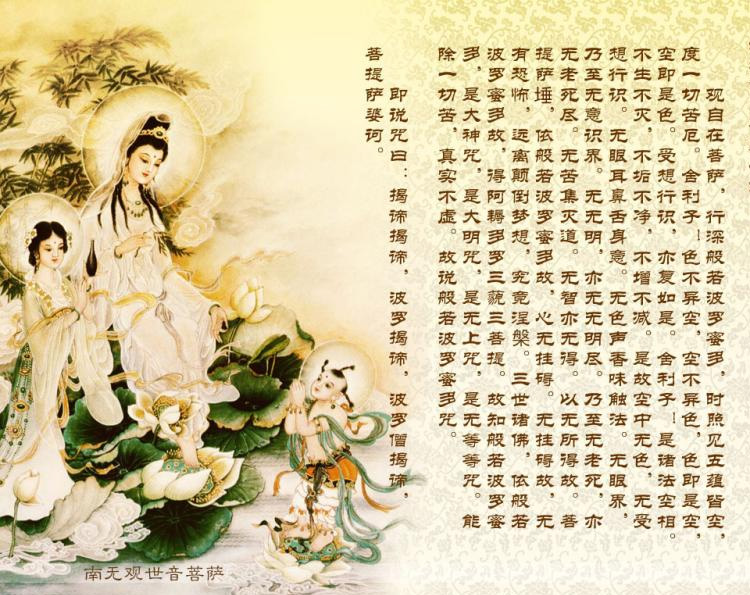 观自在菩萨，行深般若波罗蜜多，时照见五蕴皆空，
度一切苦厄。舍利子！色不异空，空不异色，色即是空，
空即是色。受想行识，亦复如是。舍利子！是诸法空相。
不生不灭，不垢不净，不增不减。是故空中无色，无受
想行识。无眼耳鼻舌身意。无色声香味触法。无眼界，
乃至无意识界。无无明，亦无无明尽。乃至无老死，亦
无老死尽。无苦集灭道。无智亦无得。以无所得故。菩
提萨埵，依般若波罗蜜多故，心无挂碍。无挂碍故，无
有恐怖，远离颠倒梦想，究竟涅槃。三世诸佛，依般若
波罗蜜多故，得阿耨多罗三藐三菩提。故知般若波罗蜜
多，是大神咒，是大明咒，是无上咒，是无等等咒。能
除一切苦，真实不虚。故说般若波罗蜜多咒。
即说咒曰：揭谛揭谛，波罗揭谛，波罗僧揭谛，
菩提萨婆诃。
南无观世音菩萨